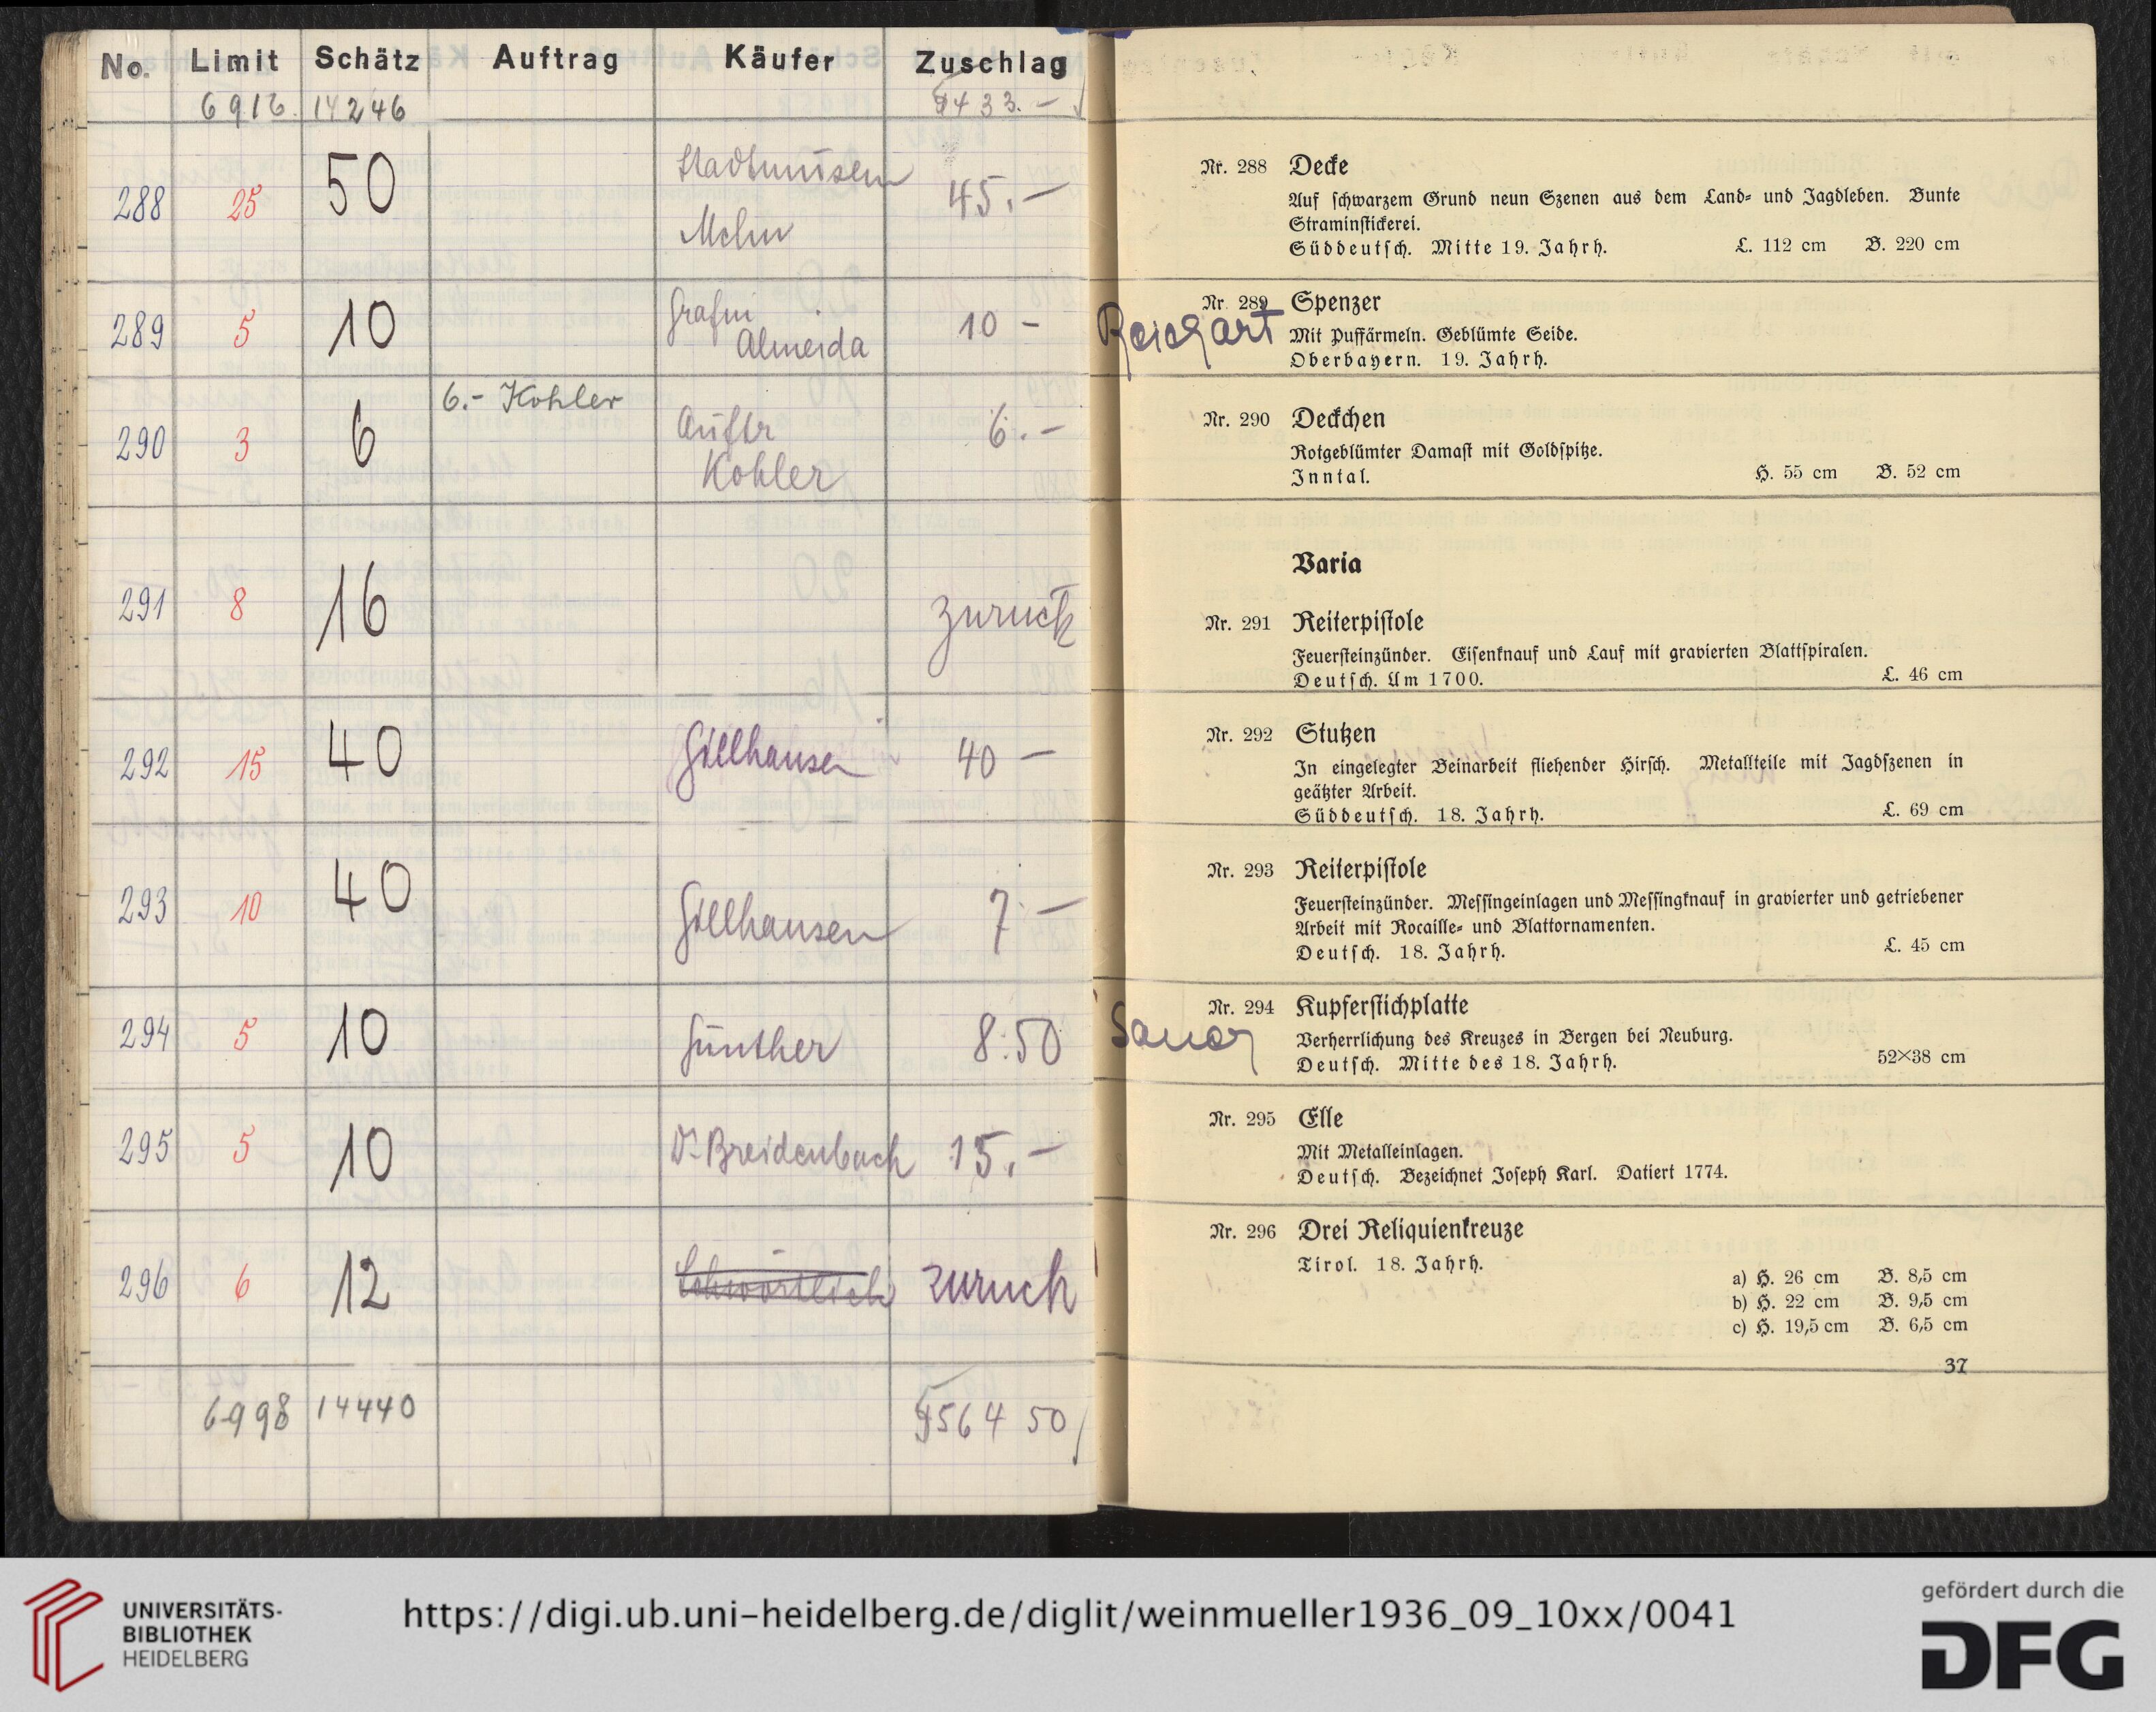 No. Limit Schätz Auftrag Käufer Zuschlag
6916. 14246 9433.-
288 25 50 Stadtmuseum 45.-
289 5 10 Gräfin Almeida 10 -
290 3 6 6.- Kohler Auftr Kohler 6.-
291 8 16 zurück
292 15 40 Gillhausen 40 -
293 10 40 Gillhausen 7.-
294 5 10 Günther 8.50
295 5 10 Dr. Breidenbach 15.-
296 6 12 zurück
6998 14440 9564 50
Nr. 288 Decke
Auf schwarzem Grund neun Szenen aus dem Land- und Jagdleben. Bunte
Straminstickerei.
Süddeutsch. Mitte 19. Jahrh. L. 112 cm B. 220 cm
Reichart
Nr. 289 Spenzer
Mit Puffärmeln. Geblümte Seide.
Oberbayern. 19. Jahrh.
Nr. 290 Deckchen
Rotgeblümter Damast mit Goldspitze.
Inntal. H. 55 cm B. 52 cm
Varia
Nr. 291 Reiterpistole
Feuersteinzünder. Eisenknauf und Lauf mit gravierten Blattspiralen.
Deutsch. Um 1700. L. 46 cm
Nr. 292 Stutzen
In eingelegter Beinarbeit fliehender Hirsch. Metallteile mit Jagdszenen in
geätzter Arbeit.
Süddeutsch. 18. Jahrh. L. 69 cm
Nr. 293 Reiterpistole
Feuersteinzünder. Messingeinlagen und Messingknauf in gravierter und getriebener
Arbeit mit Rocaille- und Blattornamenten.
Deutsch. 18. Jahrh. L. 45 cm
Nr. 294 Kupferstichplatte
Verherrlichung des Kreuzes in Bergen bei Neuburg.
Deutsch. Mitte des 18. Jahrh. 52×38 cm
Nr. 295 Elle
Mit Metalleinlagen.
Deutsch. Bezeichnet Joseph Karl. Datiert 1774.
Nr. 296 Drei Reliquienkreuze
Tirol. 18. Jahrh.
a) H. 26 cm B. 8,5 cm
b) H. 22 cm B. 9,5 cm
c) H. 19,5 cm B. 6,5 cm
37
UNIVERSITÄTS-
BIBLIOTHEK
HEIDELBERG
https://digi.ub.uni-heidelberg.de/diglit/weinmueller1936_09_10xx/0041
gefördert durch die
DFG